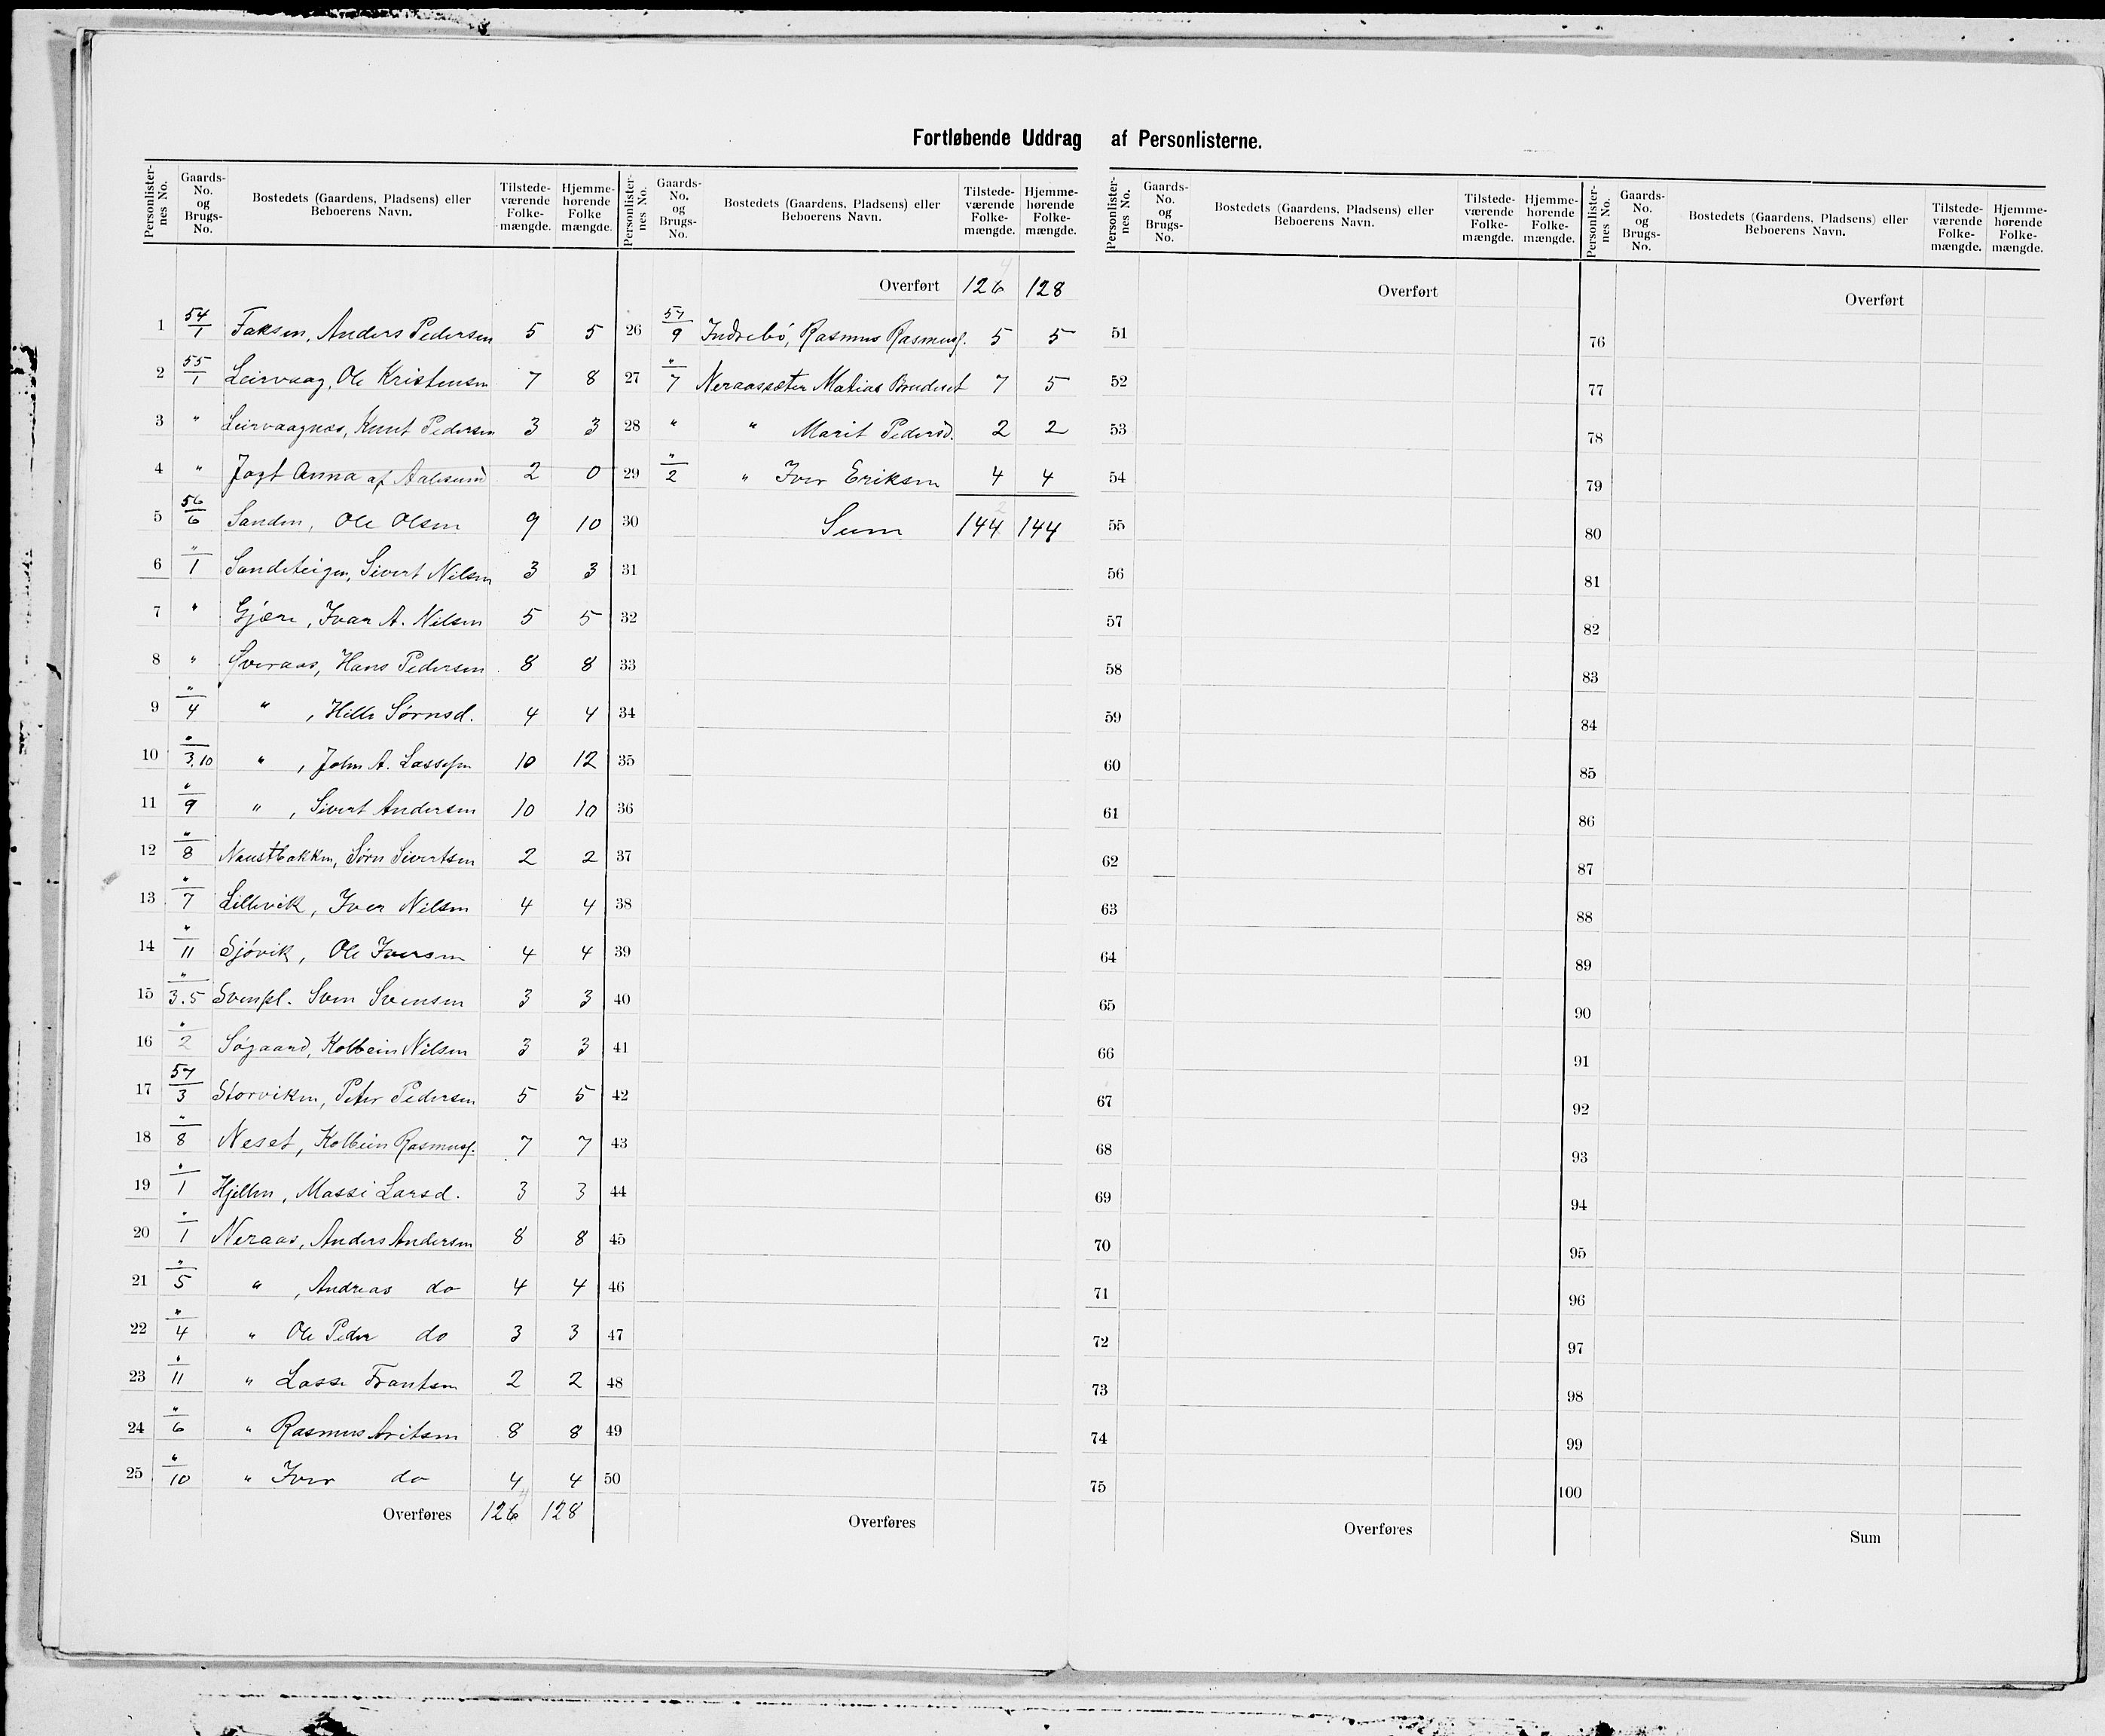 Fortløbende Uddrag af Personlisterne.
Personlister-nes No. Gaards-No. og Brugs-No. Bostedets (Gaardens, Pladsens) eller Beboerens Navn. Tilstede-værende Folke-mængde. Hjemme-hørende Folke mængde.
1 54/1 Faksen, Anders Pedersen 5 5
2 55/1 Leirvaag, Ole Kristensen 7 8
3 " Leirvaagnes, Knut Pedersen 3 3
4 " Jagt Anna af Aalesund 2 0
5 56/6 Sanden, Ole Olsen 9 10
6 "/1 Sandsteigen, Sivert Nilsen 3 3
7 " Gjære, Ivar A. Nilsen 5 5
8 " Sveraas, Hans Pedersen 8 8
9 "/4 " , Hille Sørnsd. 4 4
10 "/3.10 " , John A. Lassesen 10 12
11 "/9 " , Sivert Andersen 10 10
12 "/8 Naustbakken, Sørn Sivertsen 2 2
13 "/7 Lillevik, Iver Nilsen 4 4
14 "/11 Sjövik, Ole Iversen 4 4
15 "/3.5 Svenpl. Sven Svensen 3 3
16 "/2 Søgaard, Kolbein Nilsen 3 3
17 57/3 Storviken, Peter Pedersen 5 5
18 "/8 Neset, Kolbein Rasmuss. 7 7
19 "/1 Hjellen, Massi Larsd. 3 3
20 "/1 Neraas, Anders Andersen 8 8
21 "/5 " , Andreas do 4 4
22 "/4 " Ole Peder do 3 3
23 "/11 " Lasse Frantsen 2 2
24 "/6 " Rasmus Aritsen 8 8
25 "/10 " Iver do 4 4
Overføres 126 128
4
Personlister-nes No. Gaards-No. og Brugs-No. Bostedets (Gaardens, Pladsens) eller Beboerens Navn. Tilstede-værende Folke-mængde. Hjemme-hørende Folke-mængde.
4
Overført 126 128
26 57/9 Indrebö, Rasmus Rasmuss. 5 5
27 "/7 Neraassæter Matias Brudeset 7 5
28 " " Marit Pedersd. 2 2
29 "/2 " Iver Eriksen 4 4
2
30 Sum 144 144
31
32
33
34
35
36
37
38
39
40
41
42
43
44
45
46
47
48
49
50
Overføres
Personlister-nes No. Gaards-No. og Brugs-No. Bostedets (Gaardens, Pladsens) eller Beboerens Navn. Tilstede-værende Folke-mængde. Hjemme-hørende Folke-mængde.
Overført
51
52
53
54
55
56
57
58
59
60
61
62
63
64
65
66
67
68
69
70
71
72
73
74
75
Overføres
Personlister-nes No. Gaards-No. og Brugs-No. Bostedets (Gaardens, Pladsens) eller Beboerens Navn. Tilstede-værende Folke-mængde. Hjemme-hørende Folke-mængde.
Overført
76
77
78
79
80
81
82
83
84
85
86
87
88
89
90
91
92
93
94
95
96
97
98
99
100
Sum